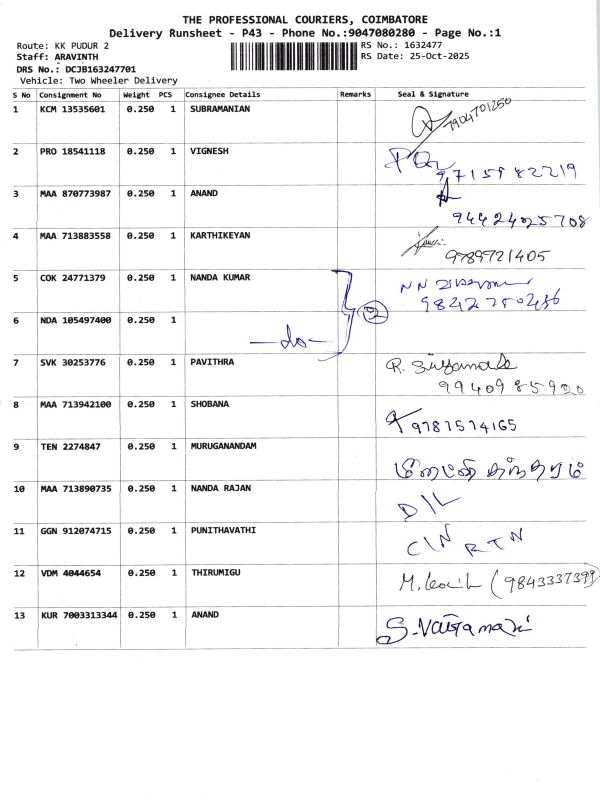 THE PROFESSIONAL COURIERS, COIMBATORE
Delivery Runsheet - P43 - Phone No.:9047080280 - Page No.:1
Route: KK PUDUR 2 RS No.: 1632477
Staff: ARAVINTH RS Date: 25-Oct-2025
DRS No.: DCJB163247701
Vehicle: Two Wheeler Delivery
S No Consignment No Weight PCS Consignee Details Remarks Seal & Signature
1 KCM 13535601 0.250 1 SUBRAMANIAN 7904701250
2 PRO 18541118 0.250 1 VIGNESH
9715982219
3 MAA 870773987 0.250 1 ANAND
9442425708
4 MAA 713883558 0.250 1 KARTHIKEYAN
9789721405
5 COK 24771379 0.250 1 NANDA KUMAR
9842750486
6 NDA 105497400 0.250 1 2
-do-
7 SVK 30253776 0.250 1 PAVITHRA R.
9940985920
8 MAA 713942100 0.250 1 SHOBANA
9787574165
9 TEN 2274847 0.250 1 MURUGANANDAM
10 MAA 713890735 0.250 1 NANDA RAJAN D/L
11 GGN 912074715 0.250 1 PUNITHAVATHI C/N RTN
12 VDM 4044654 0.250 1 THIRUMIGU M. (9843337399)
13 KUR 7003313344 0.250 1 ANAND S.